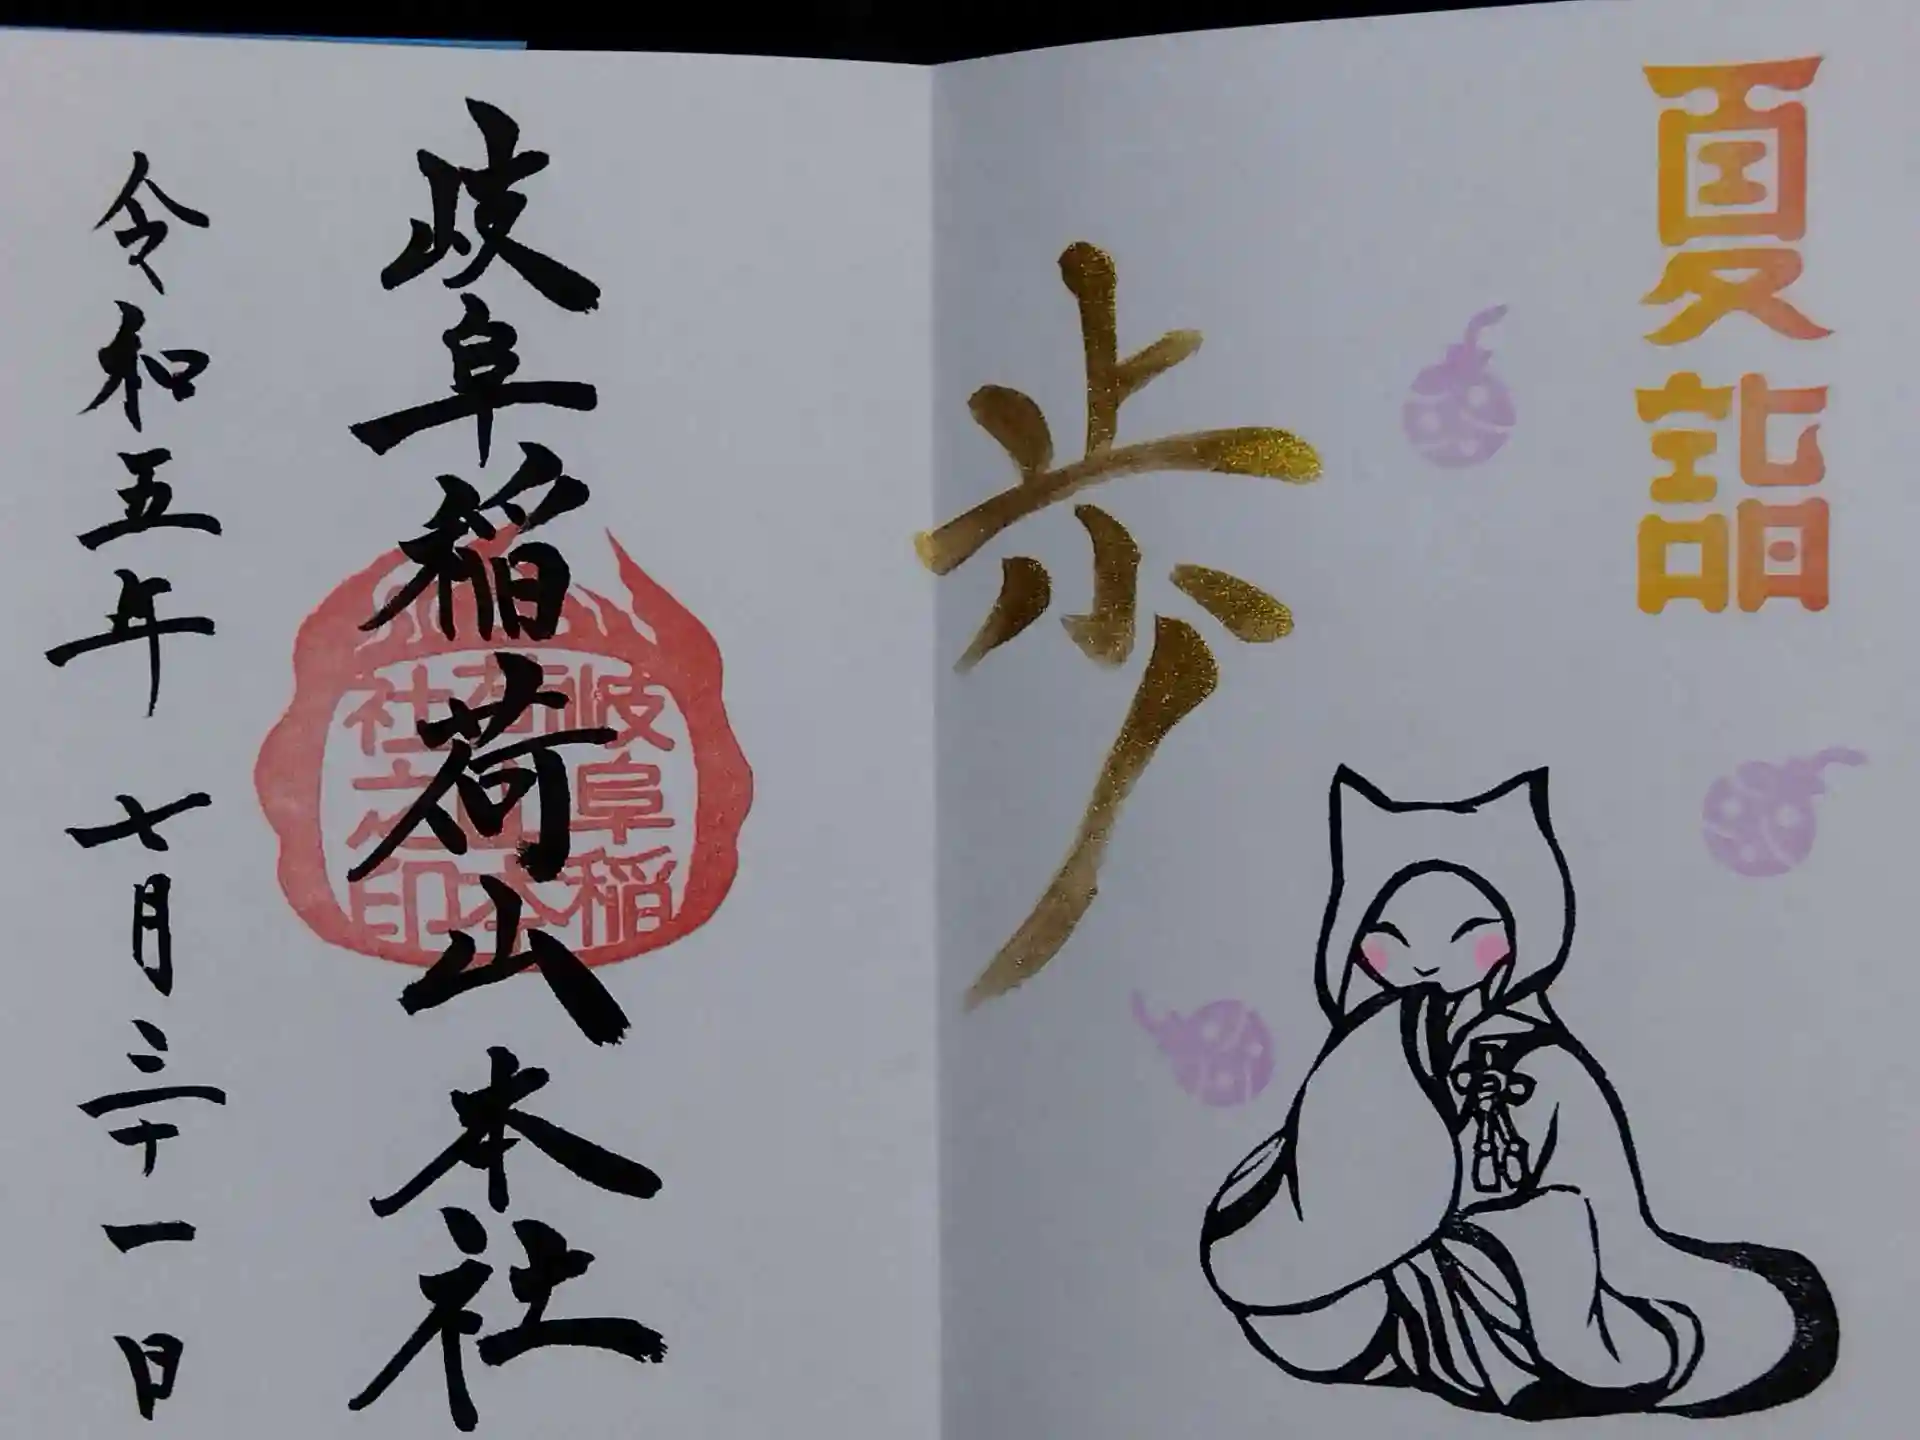 夏詣
歩
岐阜稲荷山本社
岐阜稲
荷山本
社之印
令和五年 七月三十一日